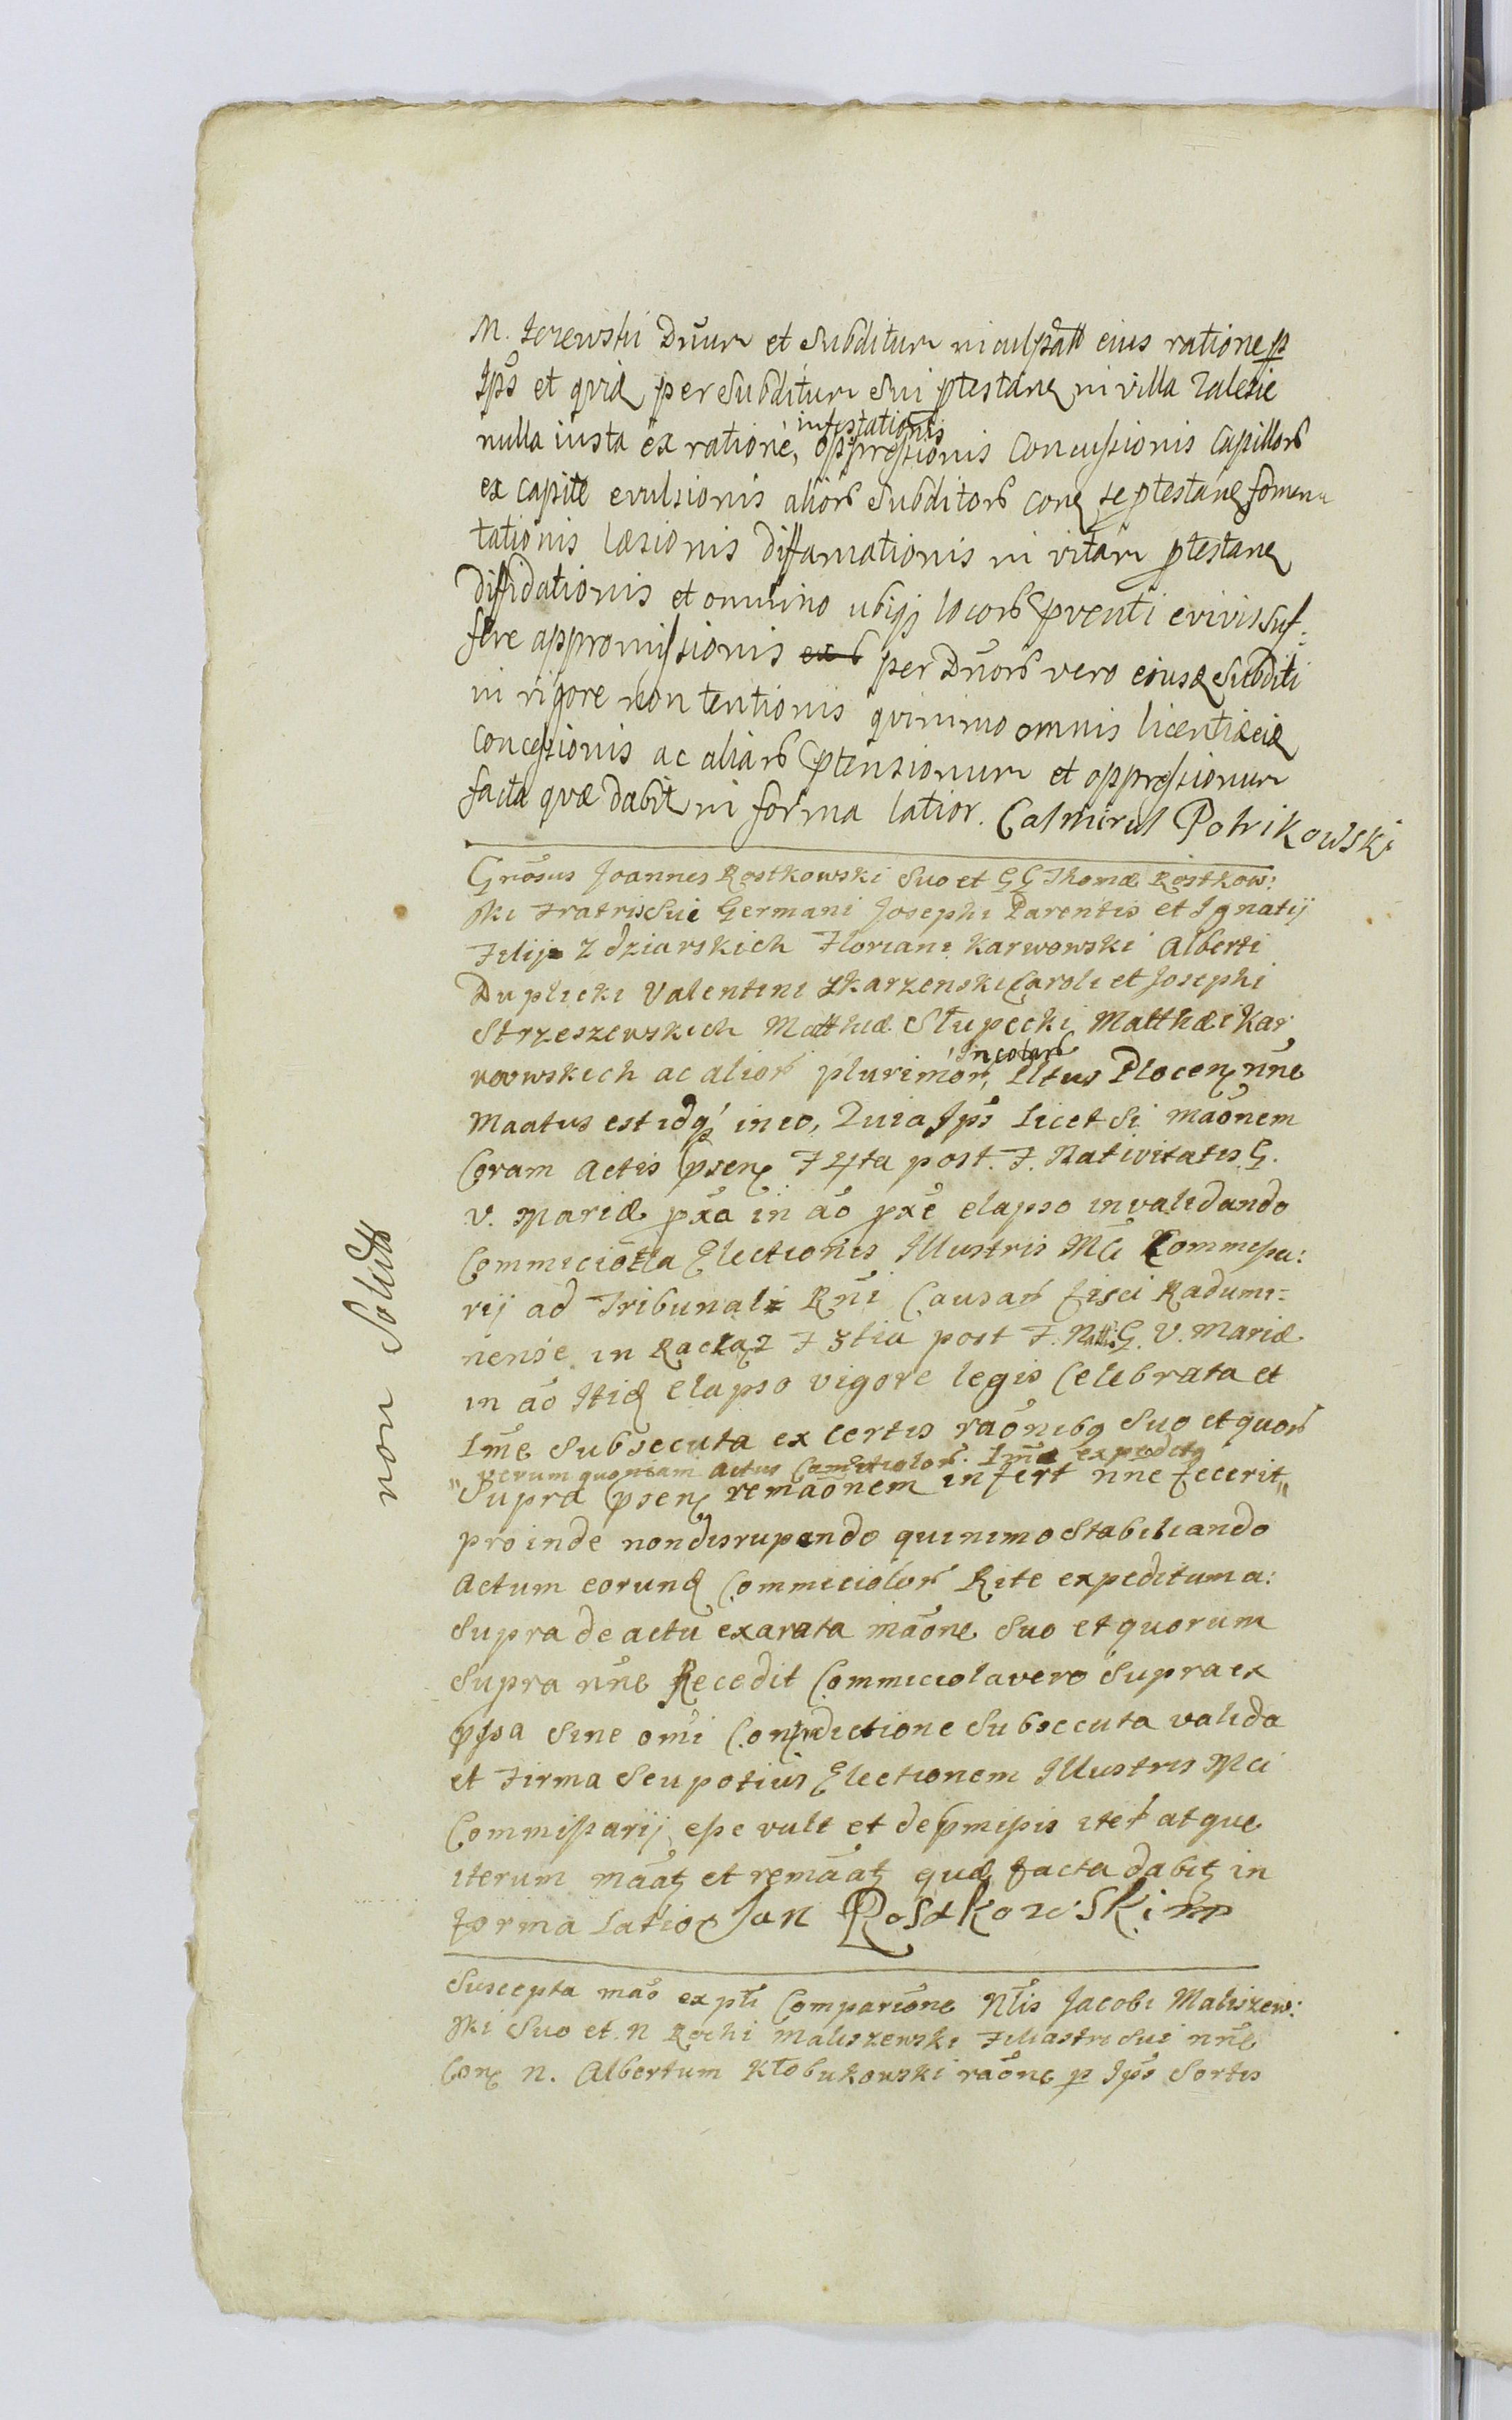 M. Jezewski Dnum et Subditum in culpatt eius ratione p
Jps et quia per Subditum Sui ptestane in villa Zalesie
nulla iusta ex ratione, infestationis oppressionis Concussionis Capillorʒ
ex capite evulsionis aliorʒ Subditorʒ conę se ptestanę fomen
tationis læsionis diffamationis in vitam ptestanę
diffidationis et omnino ubiqʒ locorʒ pventi e vivis suf-
fere appromissionis per Dnorʒ vero eiusd Subditi
in rigore non tentionis quinimo omnis licentiæ eid
concessionis ac aliarʒ ptensionum et oppressionum
facta quæ dabit in forma latior. Casmirus Potrikowski
Gnosus Joannes Rostkowski Suo et GG Thomæ Rostkow:
ski Fratris Sui Germani Josephi Parentis et Ignatij
Filij Zdziarskich Floriani Karwowski Alberti
Duplicki Valentini Skarzenski Caroli et Josephi
Strzeszewskich Matthiæ Słupecki Matthæi Kar
wowskich ac aliorʒ plurimorʒ Incolarʒ Lltus Plocenę nne
Maatus est idqʒ in eo, Quia Jps licet Si maonem
Coram Actis psenę F 4ta post. F. Nativitatis G.
V. Mariæ pxa in ao pxe elapso invalidando
Commiciola Electionis Illustris Mci Commissa:
rij ad Tribunal Rni Causarʒ fisci Radumi-
nense in Raciąz F 3tia post F. Nattis G. V. Mariæ
in ao Itid elapso vigore legis Celebrata et
Ime Subsecuta ex certis raonibq Suo et quorʒ
"verum quoniam Actus Comitiolorʒ. Ime expedito
Supra psenę remaonem infert nne fecerit"
proinde non disrupendo quinimo Stabiliando
Actum eorund Commiciolorʒ Rite expeditum a:
Supra de actu exarata maone Suo et quorum
Supra nne Recedit Commiciola vero Supra ex
pssa Sine omi Contradictione Subsecuta valida
et Firma Seu potius Electionem Illustris Mci
Commissarij esse vult et de pmissis iterʒ atque
iterum maatʒ et remaatʒ quæ facta dabitʒ in
forma latior Jan Rostkowski mp
Suscepta mao ex pti Comparione Nlis Jacobi Maliszew:
ski Suo et N Rochi Maliszewski Filiastri Sui nne
Conę N. Albertum Kłobukowski raone p Jps Sortis
non Solutt